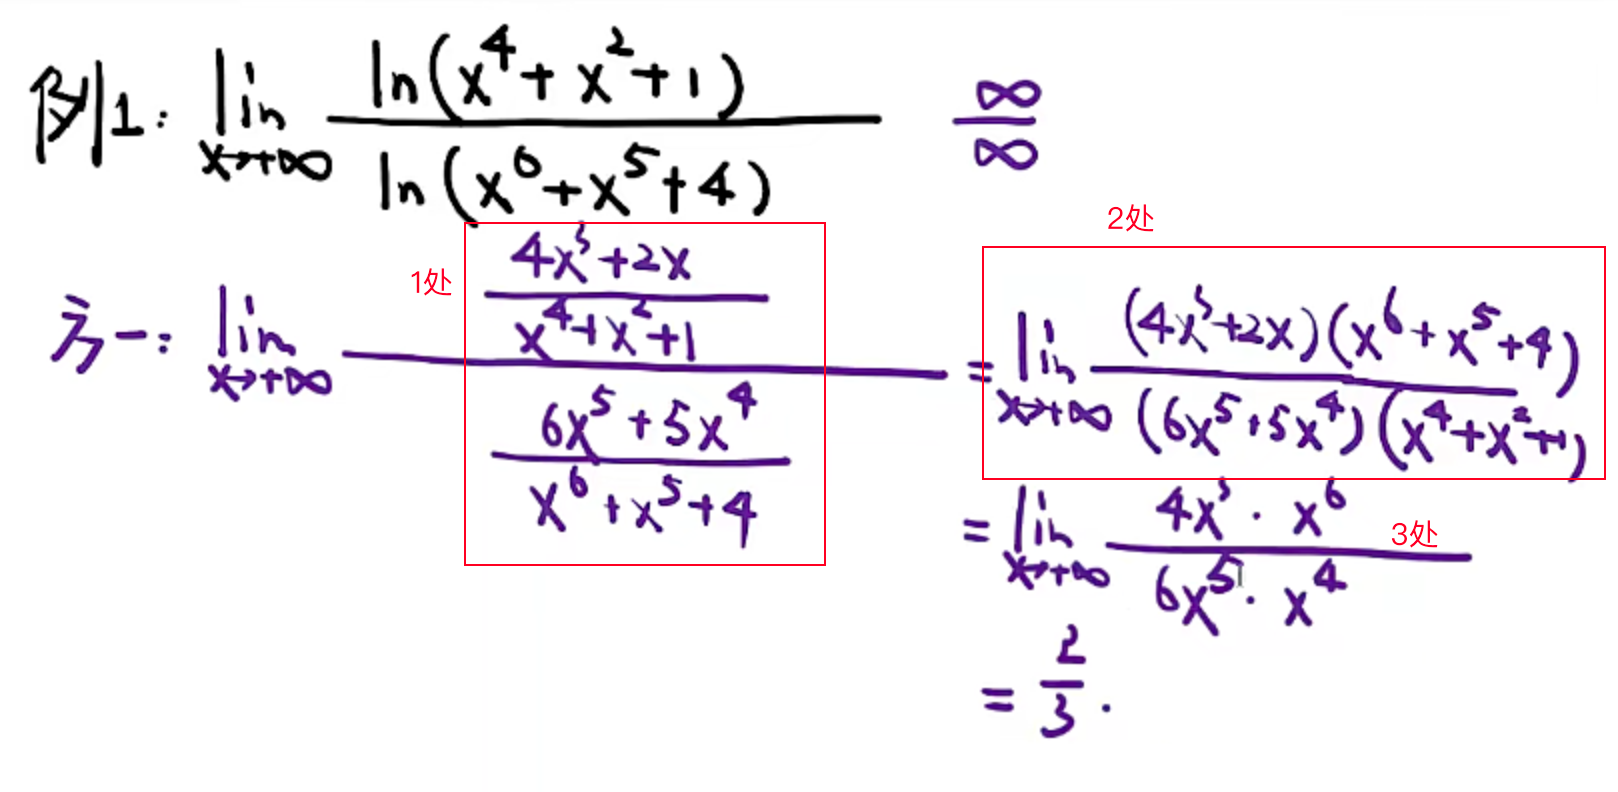 例1: lim x→+∞ ln(x⁴+x²+1) / ln(x⁶+x⁵+4) ∞/∞
2处
1处
方一: lim x→+∞ ((4x³+2x)/(x⁴+x²+1)) / ((6x⁵+5x⁴)/(x⁶+x⁵+4)) = lim x→+∞ (4x³+2x)(x⁶+x⁵+4) / (6x⁵+5x⁴)(x⁴+x²+1)
= lim x→+∞ 4x³·x⁶ / 6x⁵·x⁴ 3处
= 2/3.